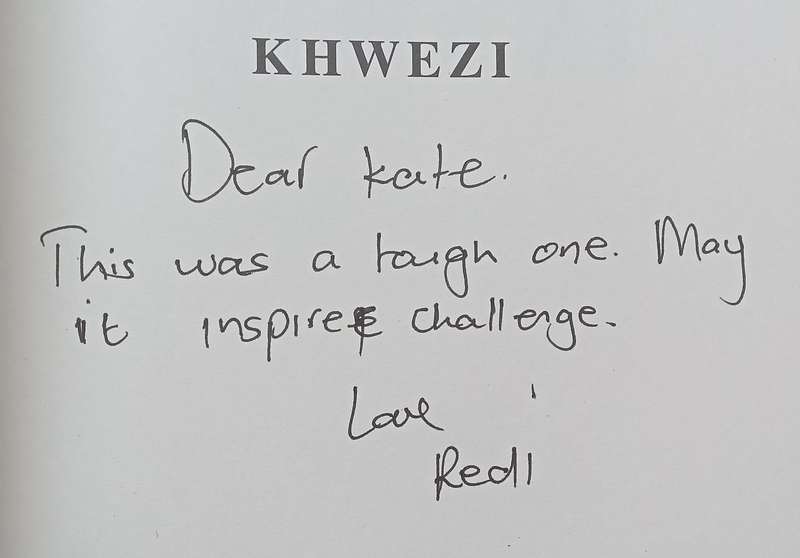 KHWEZI
Dear Kate.
This was a tough one. May
it inspire & challenge.
Love
Redi